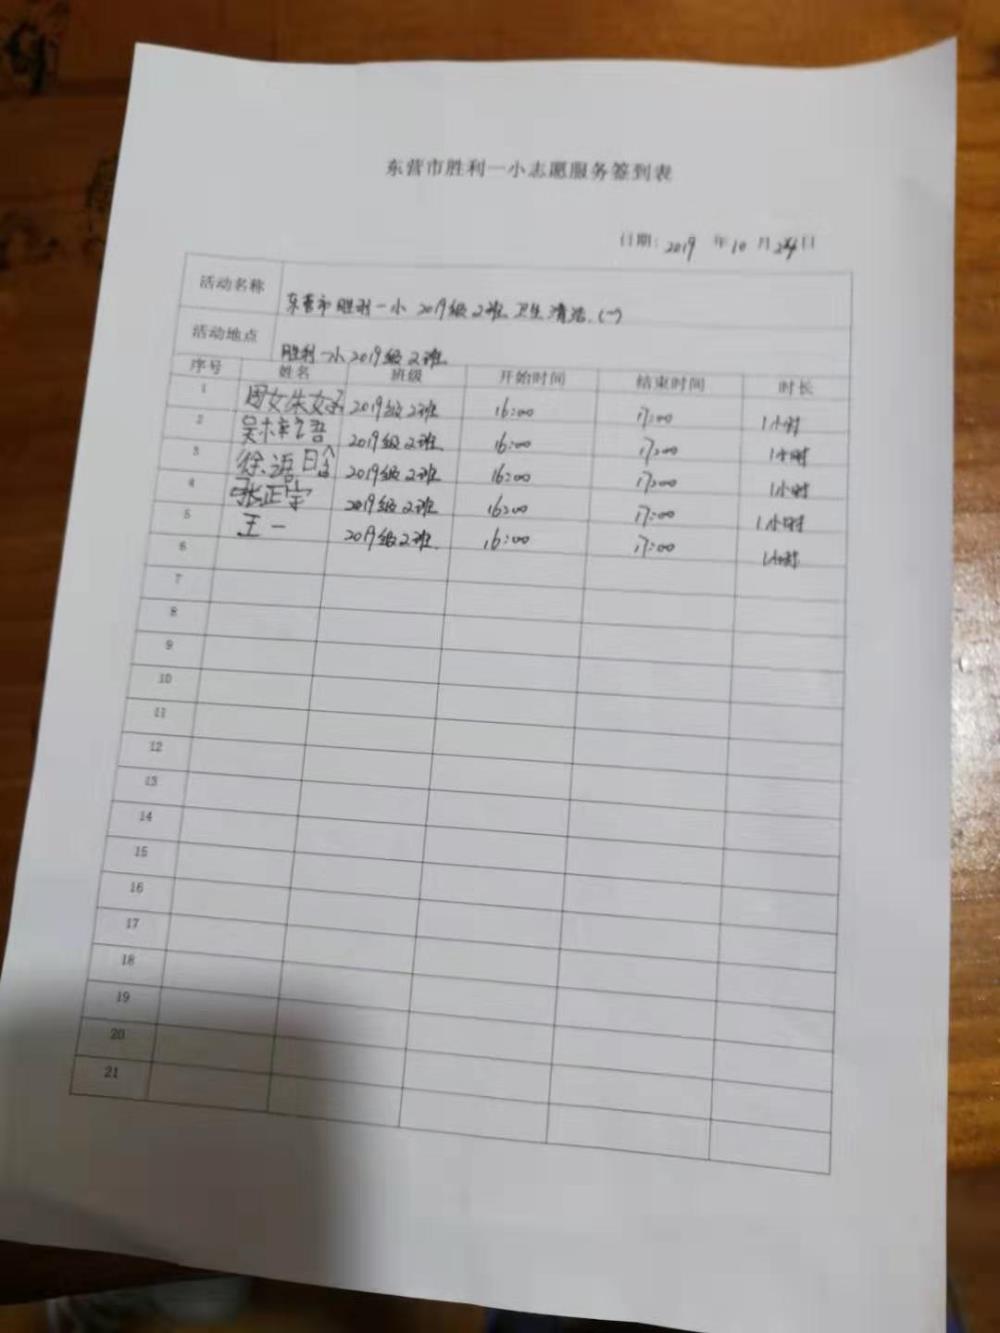 东营市胜利一小志愿服务签到表
日期: 2019 年 10 月 24日
活动名称 东营市胜利一小 2019级2班 卫生清洁.(一)
活动地点 胜利一小2019级2班
序号 姓名 班级 开始时间 结束时间 时长
1 周姝妤 2019级2班 16:00 17:00 1小时
2 吴梓语 2019级2班 16:00 17:00 1小时
3 徐语晗 2019级2班 16:00 17:00 1小时
4 张正宇 2019级2班 16:00 17:00 1小时
5 王一 2019级2班 16:00 17:00 1小时
6
7
8
9
10
11
12
13
14
15
16
17
18
19
20
21